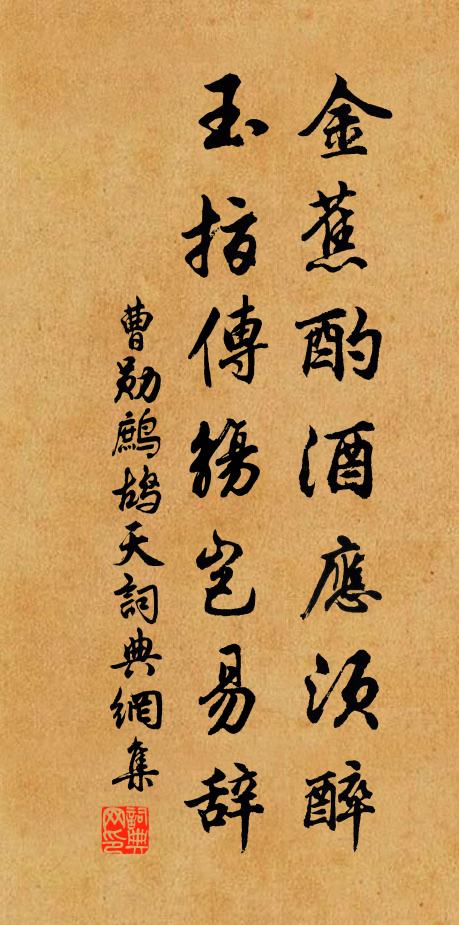 金蕉酌酒應須醉
玉指傳觴豈易辞
曹勛鷓鴣天詞典網集
詞典网印